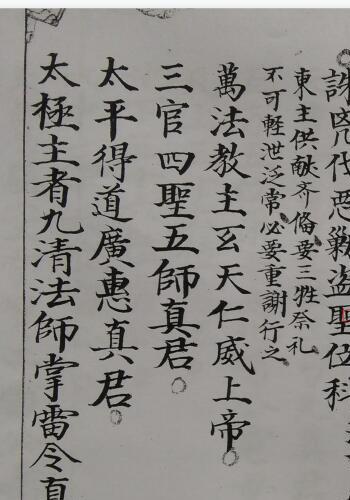 誅咒代惡剿盜聖位科
東主供献齐俻要三牲祭礼
不可軽泄泛常必要重謝行之
萬法教主玄天仁威上帝
三官四聖五師真君
太平得道廣惠真君
太極主者九清法師掌雷令真